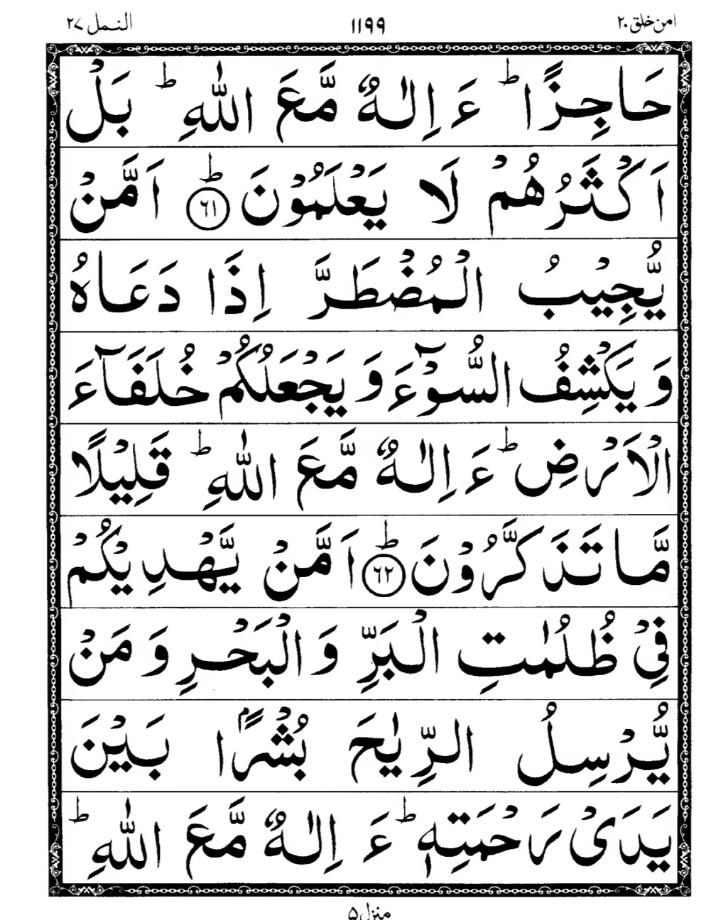 امن خلق ۲۰ ۱۱۹۹ النمل ۲۷
حَاجِزًا ؕ ءَاِلٰهٌ مَّعَ اللّٰهِ ؕ بَلْ
اَكْثَرُهُمْ لَا يَعْلَمُوْنَ ؕ ۶۱ اَمَّنْ
يُّجِيْبُ الْمُضْطَرَّ اِذَا دَعَاهُ
وَيَكْشِفُ السُّوْٓءَ وَيَجْعَلُكُمْ خُلَفَآءَ
الْاَرْضِ ؕ ءَاِلٰهٌ مَّعَ اللّٰهِ ؕ قَلِيْلًا
مَّا تَذَكَّرُوْنَ ؕ ۶۲ اَمَّنْ يَّهْدِيْكُمْ
فِيْ ظُلُمٰتِ الْبَرِّ وَالْبَحْرِ وَمَنْ
يُّرْسِلُ الرِّيٰحَ بُشْرًۢا بَيْنَ
يَدَىْ رَحْمَتِهٖ ؕ ءَاِلٰهٌ مَّعَ اللّٰهِ ؕ
منزل ۵